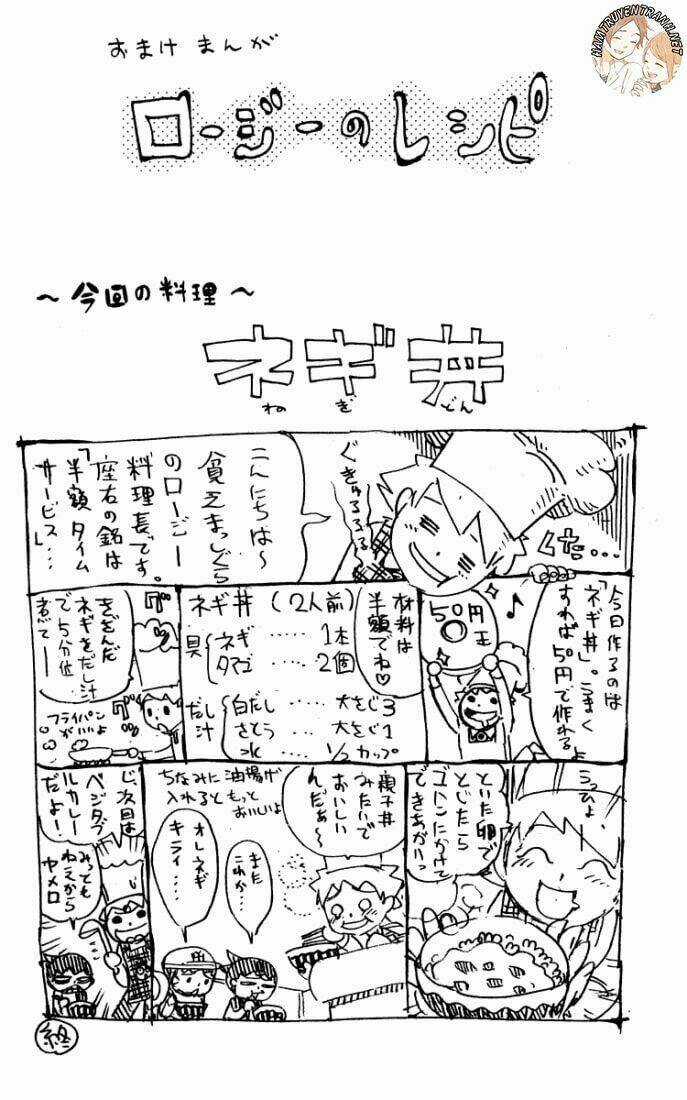 おまけまんが
HAMTRUYENTRANH.NET
ロージーのレシピ
～今回の料理～
ネギ丼
ねぎどん
こんにちは～
貧乏まっしぐら
のロージー
料理長です。
座右の銘は
「半額タイム
サービス」…
ぐぎゅるるるる
くた…
今日作るのは
「ネギ丼」。うまく
すれば50円で作れるよ
うっひょ。
50円
玉
♪
材料は
半額でね♡
ネギ丼 (2人前)
具
ネギ ‥‥‥ 1本
タマゴ ‥‥‥ 2個
だし汁
白だし 大さじ3
さとう 大さじ1
水 1/2カップ
きざんだ
ネギをだし汁
で5分位
煮て―
グ
グツ
フライパン
がいいよ
といた卵で
とじたら
ゴハンにかけて
できあがいっ
親子丼
みたいで
おいしい
んだぁ～
ちなみに油揚げ
入れるともっと
おいしいよ
また
これか…
オレネギ
キライ…
じゃ次回は
ベジタブ
ルカレー
だよ！
みっとも
ねえから
ヤメロ
終